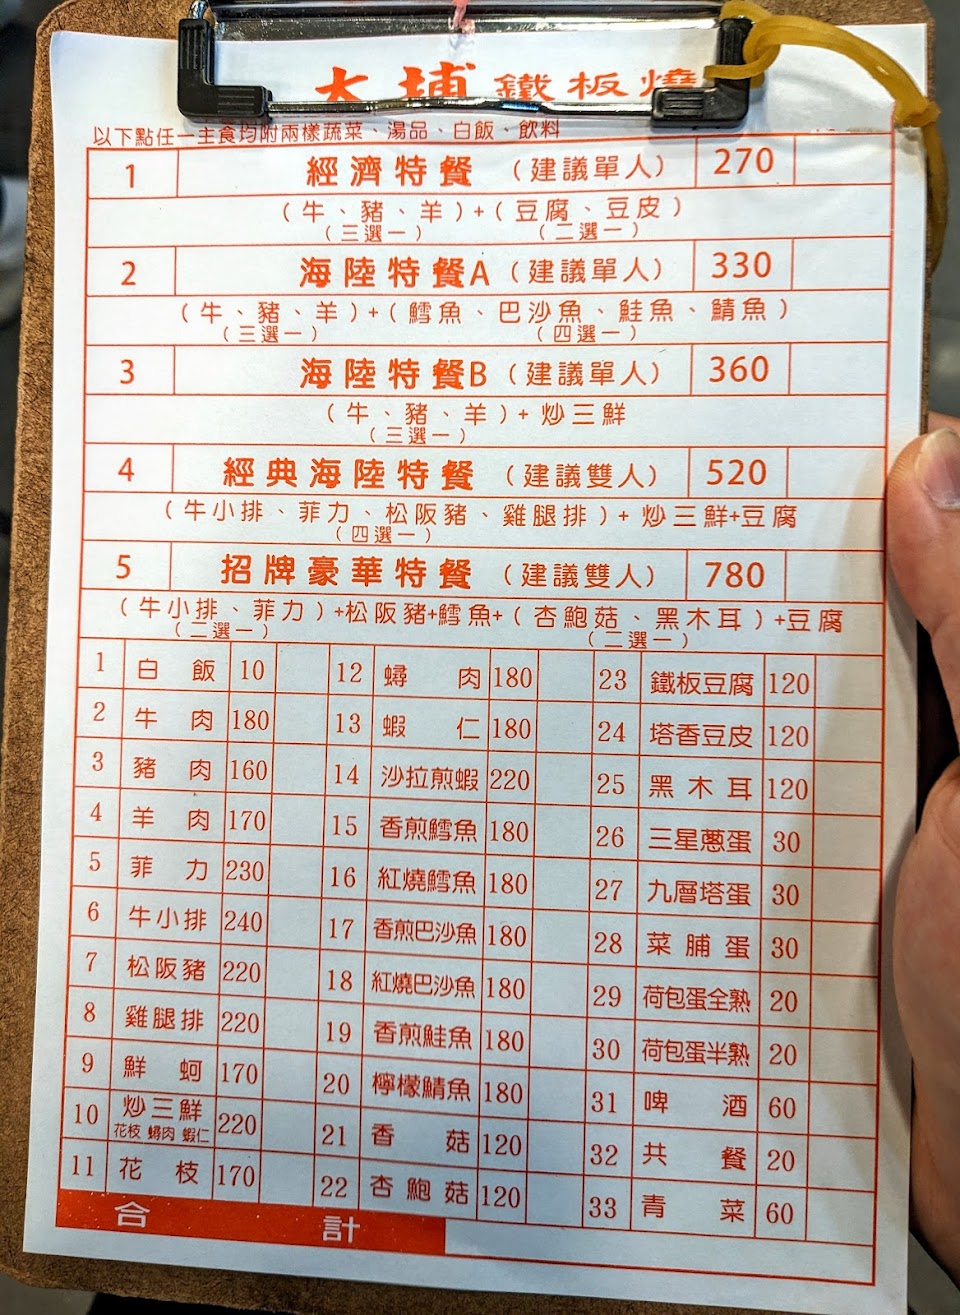 大埔 鐵板燒
以下點任一主食均附兩樣蔬菜、湯品、白飯、飲料
1 經濟特餐 (建議單人) 270
(牛、豬、羊)+(豆腐、豆皮)
(三選一) (二選一)
2 海陸特餐A (建議單人) 330
(牛、豬、羊)+(鱈魚、巴沙魚、鮭魚、鯖魚)
(三選一) (四選一)
3 海陸特餐B (建議單人) 360
(牛、豬、羊)+炒三鮮
(三選一)
4 經典海陸特餐 (建議雙人) 520
(牛小排、菲力、松阪豬、雞腿排)+炒三鮮+豆腐
(四選一)
5 招牌豪華特餐 (建議雙人) 780
(牛小排、菲力)+松阪豬+鱈魚+(杏鮑菇、黑木耳)+豆腐
(二選一) (二選一)
1 白飯 10
2 牛肉 180
3 豬肉 160
4 羊肉 170
5 菲力 230
6 牛小排 240
7 松阪豬 220
8 雞腿排 220
9 鮮蚵 170
10 炒三鮮 220
花枝 蟳肉 蝦仁
11 花枝 170
12 蟳肉 180
13 蝦仁 180
14 沙拉煎蝦 220
15 香煎鱈魚 180
16 紅燒鱈魚 180
17 香煎巴沙魚 180
18 紅燒巴沙魚 180
19 香煎鮭魚 180
20 檸檬鯖魚 180
21 香菇 120
22 杏鮑菇 120
23 鐵板豆腐 120
24 塔香豆皮 120
25 黑木耳 120
26 三星蔥蛋 30
27 九層塔蛋 30
28 菜脯蛋 30
29 荷包蛋全熟 20
30 荷包蛋半熟 20
31 啤酒 60
32 共餐 20
33 青菜 60
合計